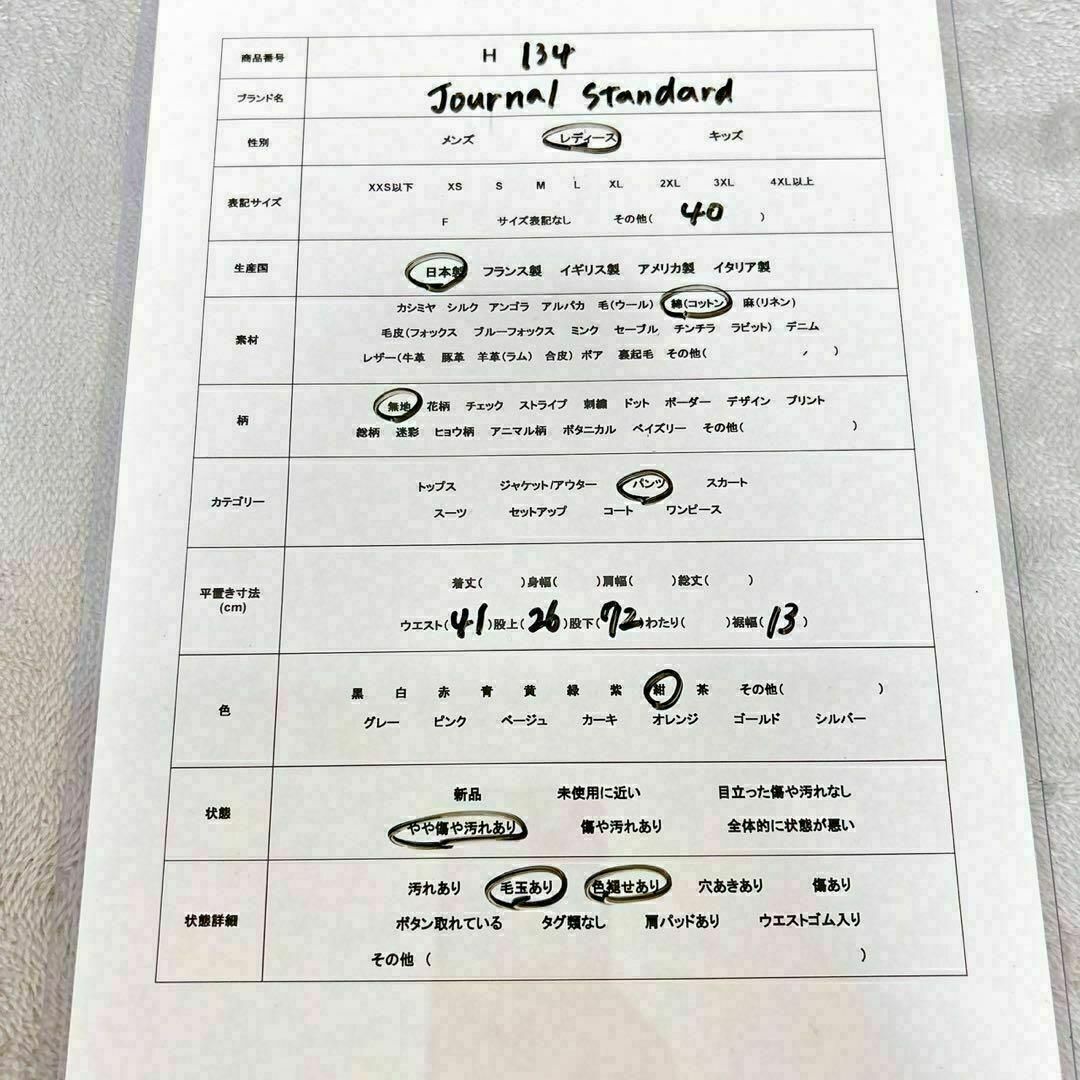 商品番号 H 134
ブランド名 Journal Standard
性別 メンズ レディース キッズ
XXS以下 XS S M L XL 2XL 3XL 4XL以上
表記サイズ
F サイズ表記なし その他( 40 )
生産国 日本製 フランス製 イギリス製 アメリカ製 イタリア製
カシミヤ シルク アンゴラ アルパカ 毛(ウール) 綿(コットン) 麻(リネン)
毛皮(フォックス ブルーフォックス ミンク セーブル チンチラ ラビット) デニム
素材
レザー(牛革 豚革 羊革(ラム) 合皮) ボア 裏起毛 その他( )
無地 花柄 チェック ストライプ 刺繍 ドット ボーダー デザイン プリント
柄
総柄 迷彩 ヒョウ柄 アニマル柄 ボタニカル ペイズリー その他( )
トップス ジャケット/アウター パンツ スカート
カテゴリー
スーツ セットアップ コート ワンピース
着丈( )身幅( )肩幅( )総丈( )
平置き寸法
(cm)
ウエスト(41)股上(26)股下(72)わたり( )裾幅(13)
黒 白 赤 青 黄 緑 紫 紺 茶 その他( )
色
グレー ピンク ベージュ カーキ オレンジ ゴールド シルバー
新品 未使用に近い 目立った傷や汚れなし
状態
やや傷や汚れあり 傷や汚れあり 全体的に状態が悪い
汚れあり 毛玉あり 色褪せあり 穴あきあり 傷あり
状態詳細 ボタン取れている タグ類なし 肩パッドあり ウエストゴム入り
その他 ( )